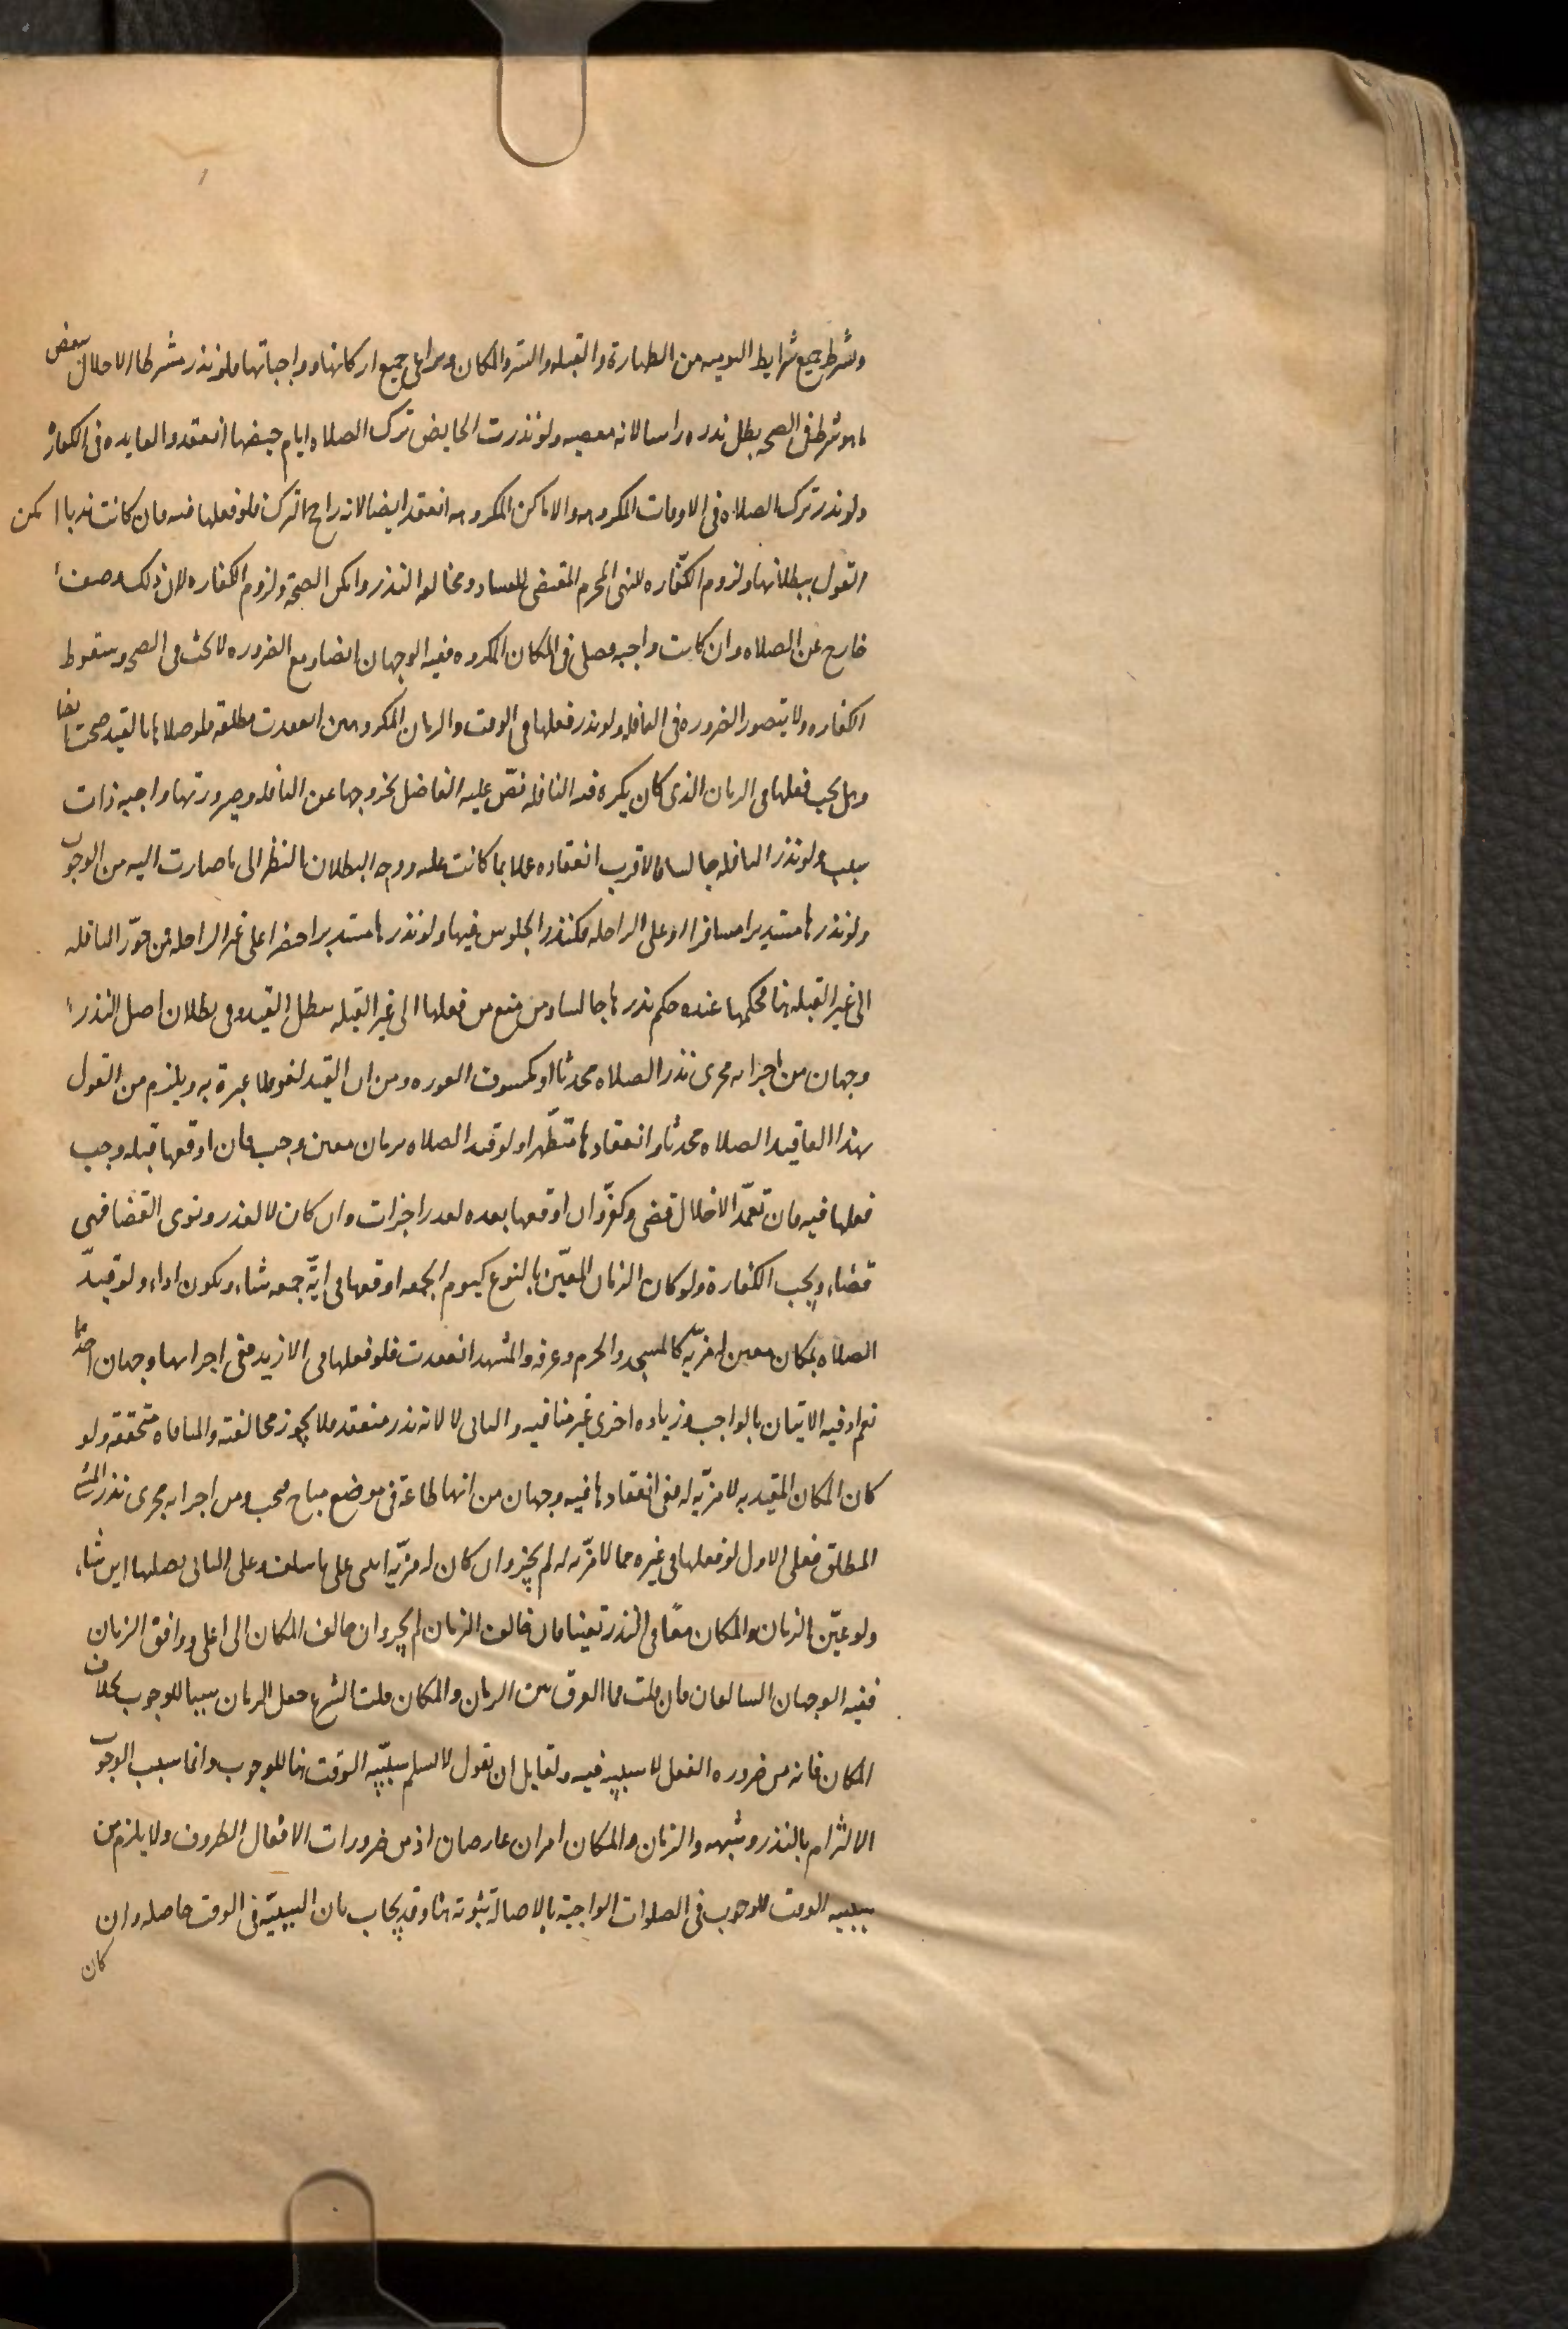 وشرط جميع شرايط اليوميه من الطهارة والقبله والستر والمكان ويراعى جميع اركانها وواجباتها فلو نذر مشرطا الاخلال ببعض
ما هو شرط فى الصحه بطل نذره راسا لانه معصيه ولو نذرت الحايض ترك الصلاه ايام حيضها انعقد والفايده فى الكفارة
ولو نذر ترك الصلاه فى الاوقات المكروهه والاماكن المكروهه انعقد ايضا لانه راجح الترك فلو فعلها فيه فان كانت ندبا امكن
القول ببطلانها ولزوم الكفّاره للنهى المحرم المقتضى للفساد ومخالفه النذر وامكن الصحة ولزوم الكفاره لان ذلك وصف
خارج عن الصلاه وان كانت واجبه فصلى فى المكان المكروه ففيه الوجهان ايضا ومع الضروره لا شك فى الصحه وسقوط
الكفاره ولا يتصور الضروره فى النافله ولو نذر فعلها فى الوقت والزمان المكروهين انعقدت مطلقه فلو صلاها بالقيد صحت ايضا
وهل يجب فعلها فى الزمان الذى كان يكره فيه النافله نصّ عليه الفاضل لخروجها عن النافله وصيرورتها واجبه ذات
سبب ولو نذر النافله جالسا فالاقرب انعقاده عملا بما كانت عليه ووجه البطلان بالنظر الى ما صارت اليه من الوجوب
ولو نذرها مستدبرا مسافرا او على الراحله فكنذر الجلوس فيها ولو نذرها مستدبرا حضرا على غير الراحله فمن جوّز النافله
الى غير القبله هنا فحكمها عنده حكم نذرها جالسا ومن منع من فعلها الى غير القبله يبطل القيد وفى بطلان اصل النذر
وجهان من اجرائه مجرى نذر الصلاه محدثا او مكشوف العوره ومن ان القيد لغو فلا عبرة به ويلزم من القول
بهذا الغا قيد الصلاه محدثا وانعقادها متطهرا ولو قيد الصلاه بزمان معين وجب فان اوقعها قبله وجب
فعلها فيه فان تعمّد الاخلال قضى وكفّر وان اوقعها بعده لعذر اجزات وان كان لا لعذر ونوى القضا فهى
قضاء ويجب الكفارة ولو كان الزمان المعيّن بالنوع كيوم الجمعه اوقعها فى ايّة جمعه شاء ويكون اداء ولو قيّد
الصلاه بمكان معين له مزيّه كالمسجد والحرم وعرفه والمشهد انعقدت فلو فعلها فى الازيد ففى اجزائها وجهان احدهما
نعم اذ فيه الاتيان بالواجب وزياده اخرى غير منافيه والثانى لا لانه نذر منعقد فلا يجوز مخالفته والمنافاه متحققه ولو
كان المكان المقيد به لا مزيّه له ففى انعقادها فيه وجهان من انها طاعة فى موضع مباح فيجب ومن اجرائه مجرى نذر المشى
المطلق فعلى الاول لو فعلها فى غيره مما لا مزيّه له لم يجز وان كان له مزيّه انبنى على ما سلف وعلى الثانى يصليها اين شاء
ولو عيّن الزمان والمكان معًا فى النذر تعينا فان خالف الزمان لم يجز وان خالف المكان الى اعلى ووافق الزمان
ففيه الوجهان السالفان فان قلت فما الفرق بين الزمان والمكان قلت الشرع جعل الزمان سببا للوجوب بخلاف
المكان فانه من ضروره الفعل لا سببيه فيه ولقايل ان يقول لا نسلم سببيّه الوقت هنا للوجوب وانما سبب الوجوب
الالتزام بالنذر وشبهه والزمان والمكان امران عارضان اذ من ضرورات الافعال الظروف ولا يلزم من
سببيه الوقت للوجوب فى الصلوات الواجبة بالاصالة ثبوته هنا وقد يجاب بان السببيّة فى الوقت حاصله وان
كان